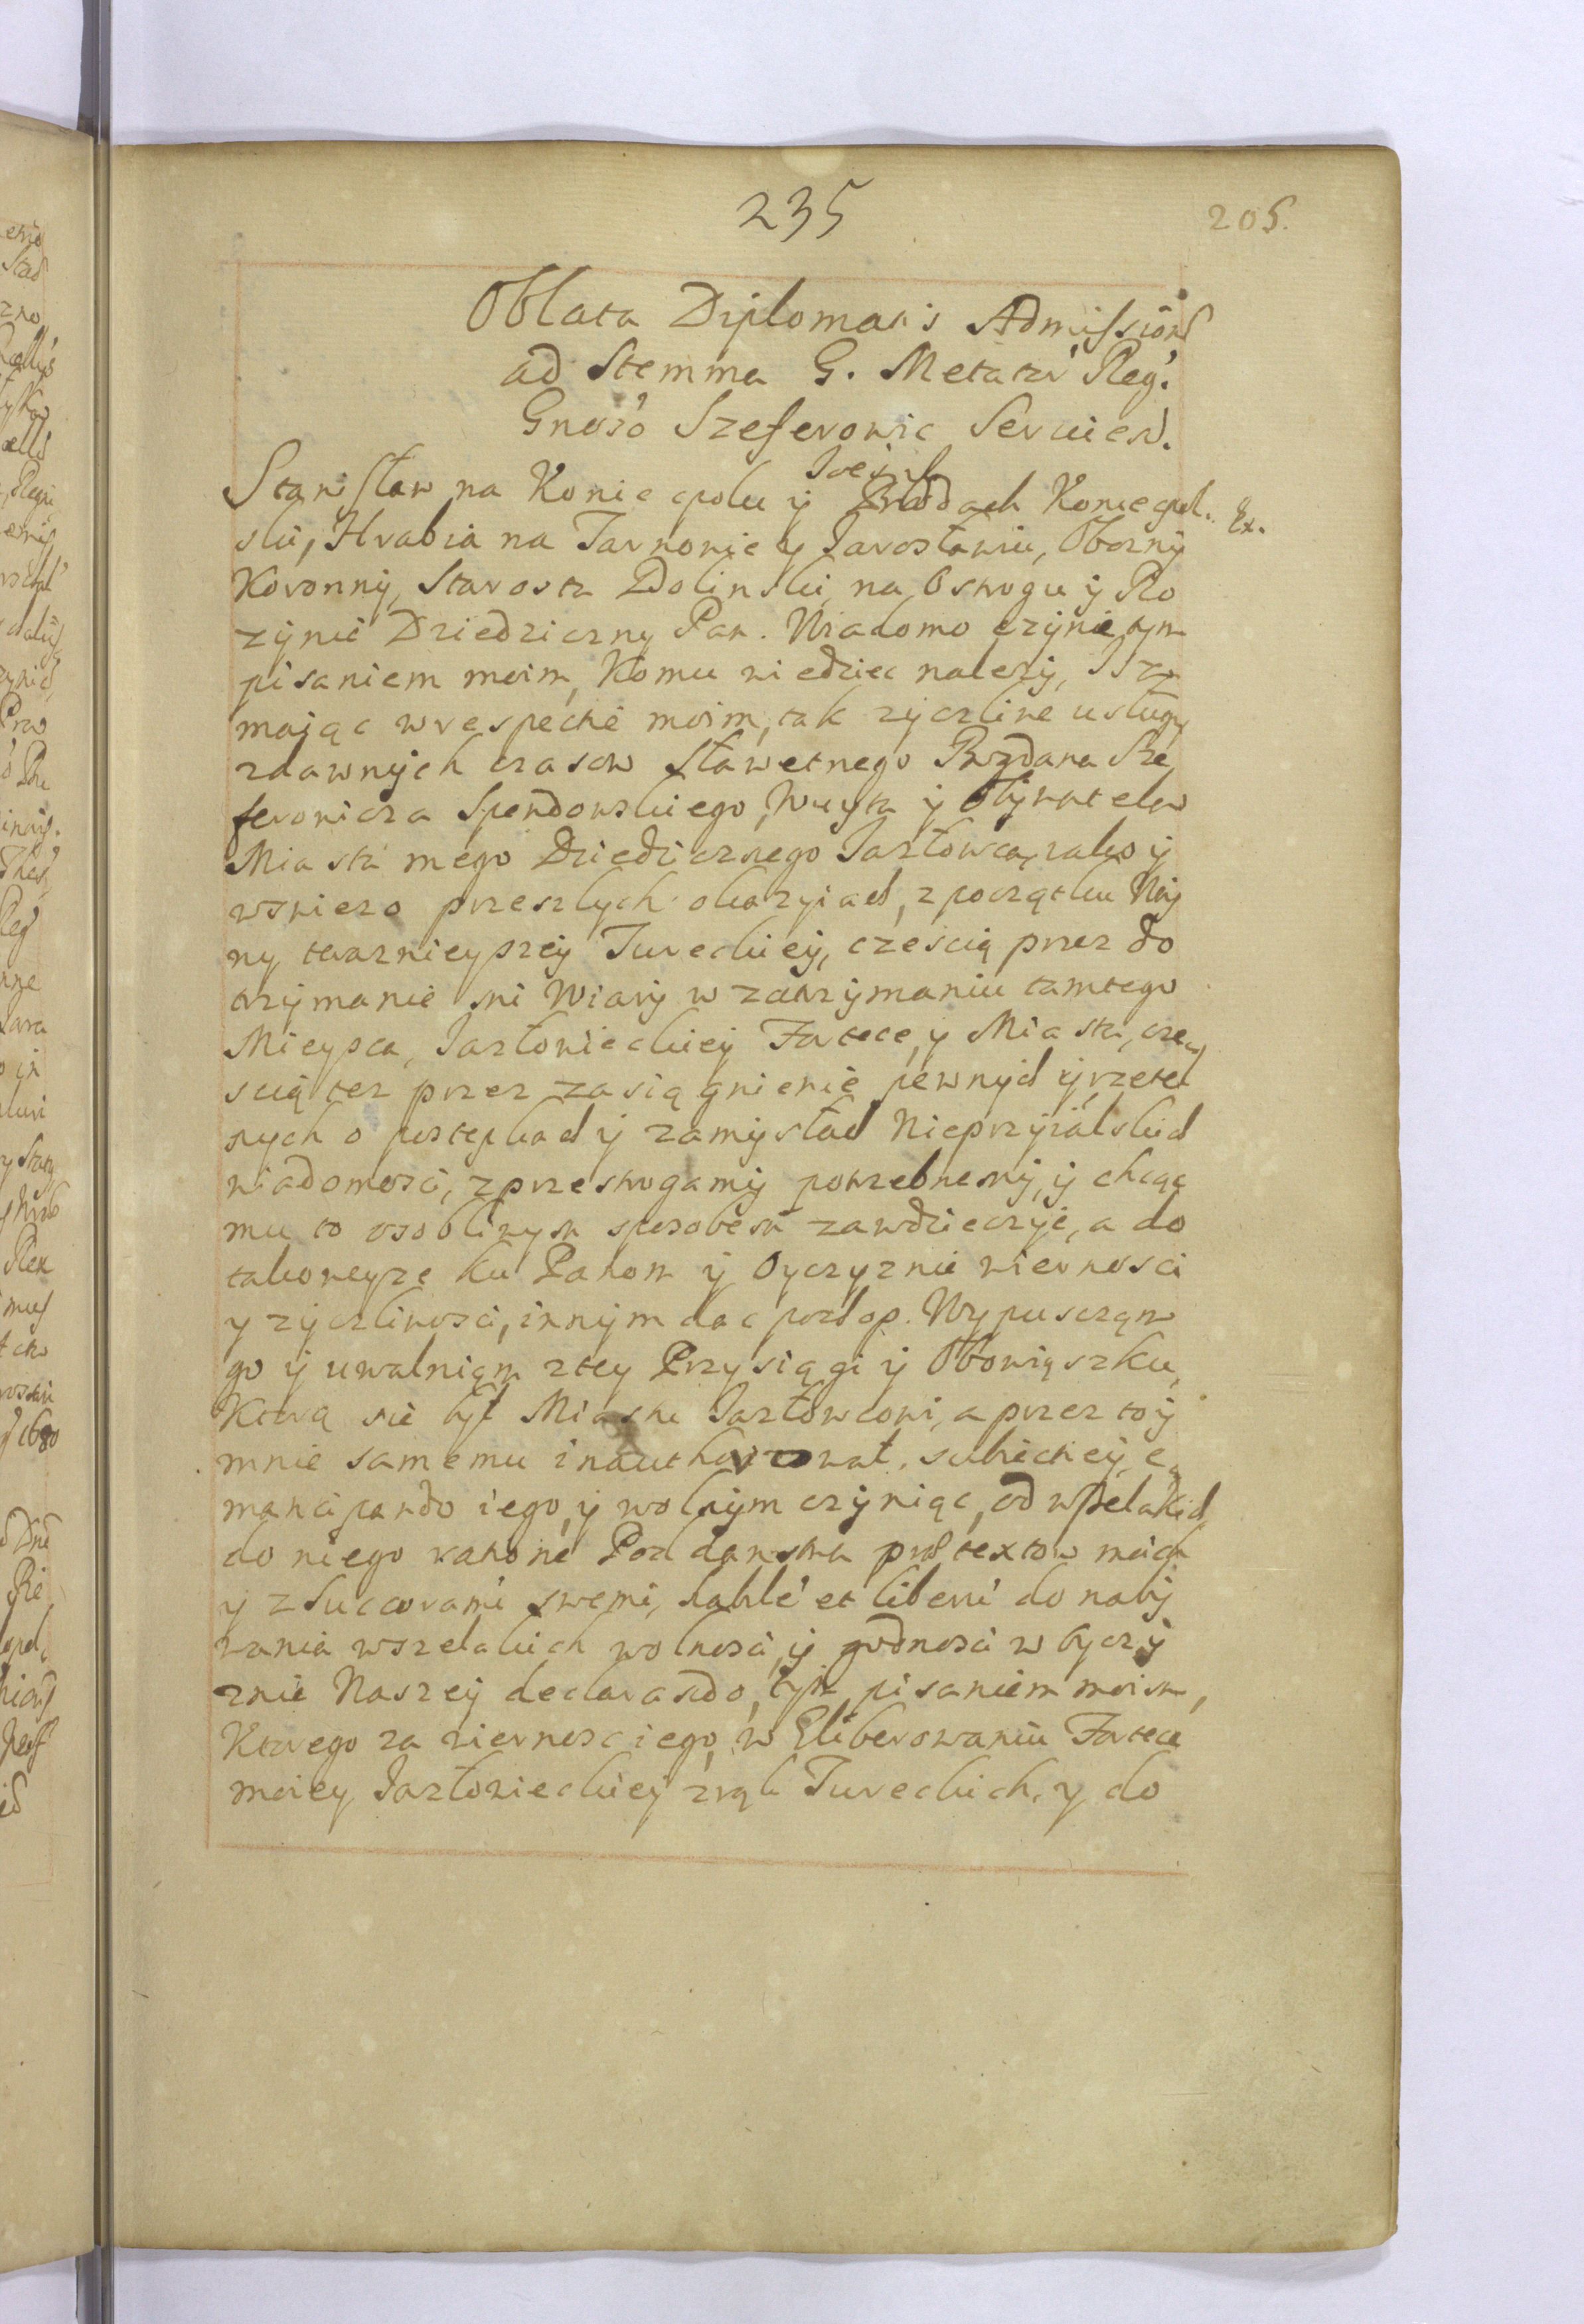 235
205.
Oblata Diplomatis Admissionis
ad Stemma G. Metatri Reg.
Gnoso Szeferowic Seruien.
Stanisław na Koniecpolu ÿ Brodach Koniecpol. Ex.
ski, Hrabia na Tarnowie y Jarosławiu, Obozny
Koronnÿ, Starosta Dolinski, na Ostrogu ÿ Ro
zÿnie Dziedziczny Pan. Wiadomo czÿnie tym
pisaniem moim, Komu wiedziec nalezÿ, Isz
maiąc w respecie moim, tak zÿczliwe usługi
zdawnÿch czasow sławetnego Bogdana Sze
ferowicza Spendowskiego, Wuyta ÿ Obÿwatela
Miasta mego Dziedzicznego Jazłowca, iako ÿ
wswiezo przeszlych okazyiach, z początku Woÿ
ny teraznieyszeÿ Tureckieÿ, czescią przez do
trzÿmanie mi Wiarÿ w zatrzÿmaniu tamtego
Mieysca, Jazłowieckieÿ Fortece, y Miasta, cze
scią tez przez zasiągnienie pewnÿch ÿ rzetel
nych o postępkach ÿ zamÿsłach Nieprzÿialskich
wiadomosci, z przestrogamÿ potrzebnemÿ, ÿ chcąc
mu to osobliwym sposobem zawdzieczÿc, a do
takoweysze ku Panom ÿ Oyczyznie wiernosci
y zÿczliwosci, innÿm dac postęp. Wypuscząm
go ÿ uwalniąm z tey Przysiągi ÿ Obowiąszku,
Ktorą sie bÿł Miastu Jazłowcowi, a przez to ÿ
mnie samemu inauthorowat, subiectieÿ, e
mancipando iego, ÿ wolnÿm czÿniąc, od wszelakich
do niego ratione Poddanstwa praetextow moich
ÿ z Succorami swemi, habile et liberu do nabÿ
wania wszelakich wolnosci, ÿ godnosci w Oyczÿ
znie Naszeÿ declarando, tÿm pisaniem moim,
Ktorego za wiernosc iego, w Eliberowaniu Fortece
moiey Jazłowieckieÿ z rąk Tureckich, y do